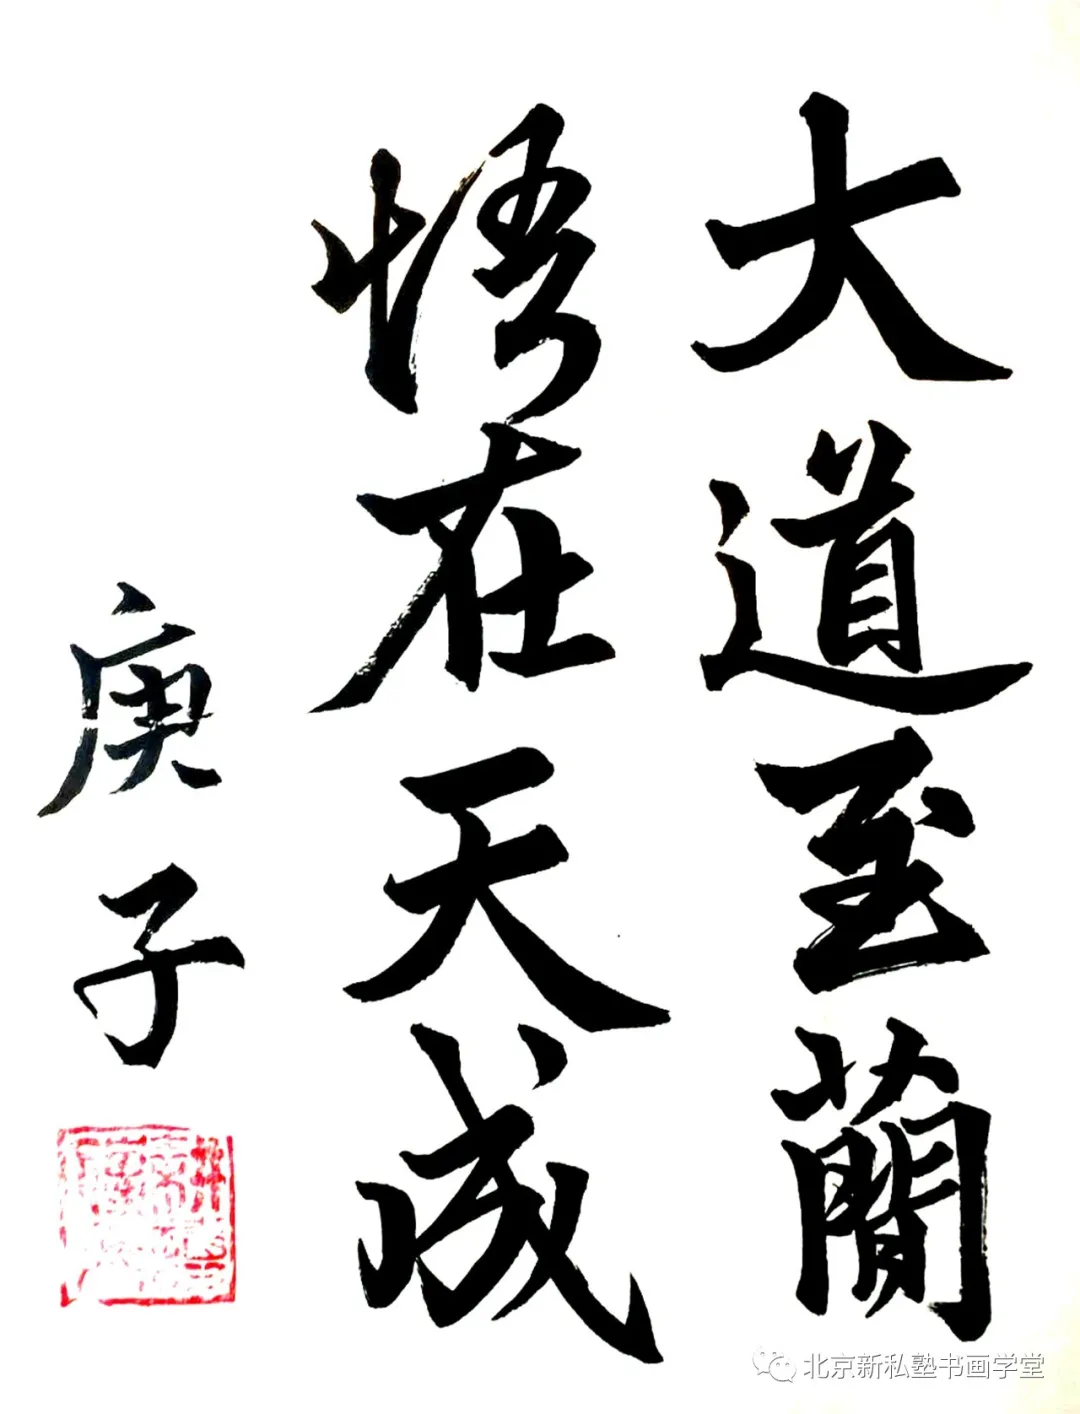 大道至蕳
悟在天成
庚子
北京新私塾书画学堂